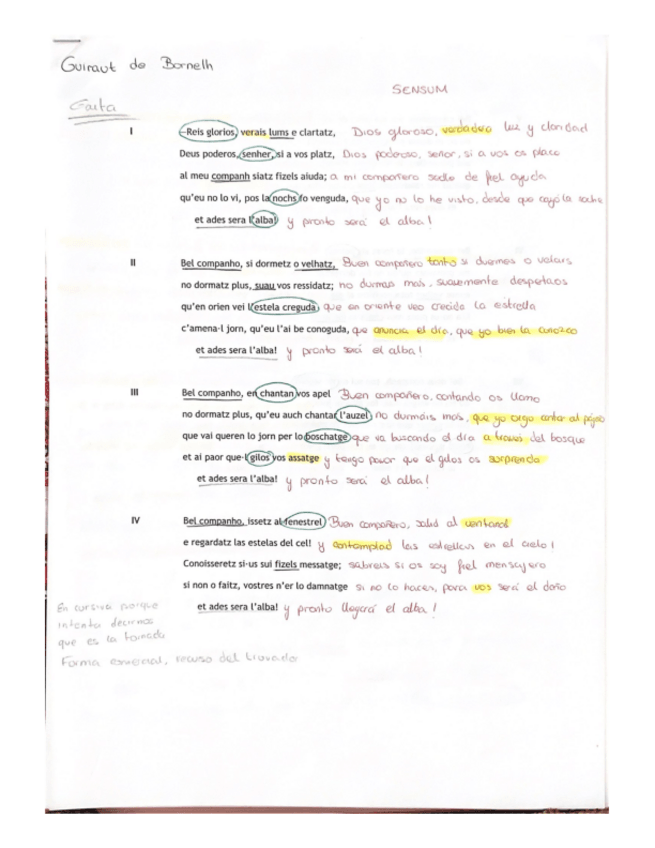 Guiraut de Bornelh
SENSUM
Gaita
I
–Reis glorios, verais lums e clartatz, Dios glorioso, verdadero luz y claridad
Deus poderos, senher, si a vos platz, Dios poderoso, señor, si a vos os place
al meu companh siatz fizels aiuda; a mi compañero sedle de fiel ayuda
qu'eu no lo vi, pos la nochs fo venguda, que yo no lo he visto, desde que cayó la noche
et ades sera l'alba! y pronto será el alba!
II
Bel companho, si dormetz o velhatz, Buen compañero tanto si duermes o veláis
no dormatz plus, suau vos ressidatz; no durmáis más, suavemente despertaos
qu'en orien vei l'estela creguda, que en oriente veo crecida la estrella
c'amena·l jorn, qu'eu l'ai be conoguda, que anuncia el día, que yo bien la conozco
et ades sera l'alba! y pronto será el alba!
III
Bel companho, en chantan vos apel Buen compañero, cantando os llamo
no dormatz plus, qu'eu auch chantar l'auzel no durmáis más, que yo oigo cantar al pájaro
que vai queren lo jorn per lo boschatge que va buscando el día a través del bosque
et ai paor que·l gilos vos assatge y tengo pavor que el gilos os sorprenda
et ades sera l'alba! y pronto será el alba!
IV
Bel companho, issetz al fenestrel Buen compañero, salid al ventanal
e regardatz las estelas del cel! y contemplad las estrellas en el cielo!
Conoisseretz si·us sui fizels messatge; sabréis si os soy fiel mensajero
si non o faitz, vostres n'er lo damnatge si no lo haces, para vos será el daño
et ades sera l'alba! y pronto llegará el alba!
En cursiva porque
intenta decirnos
que es la tornada
Forma esencial, recurso del trovador